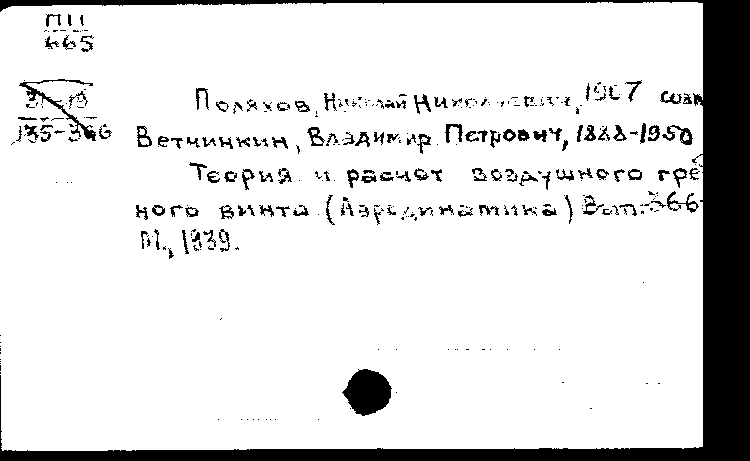 ПII
665
31-19
135-366
Поляхов, Николай Николаевич, 1907 соав
Ветчинкин, Владимир Петрович, 1888-1950
Теория и расчот воздушного греб
ного винта (Аэродинамика) Вып. 366
М., 1939.